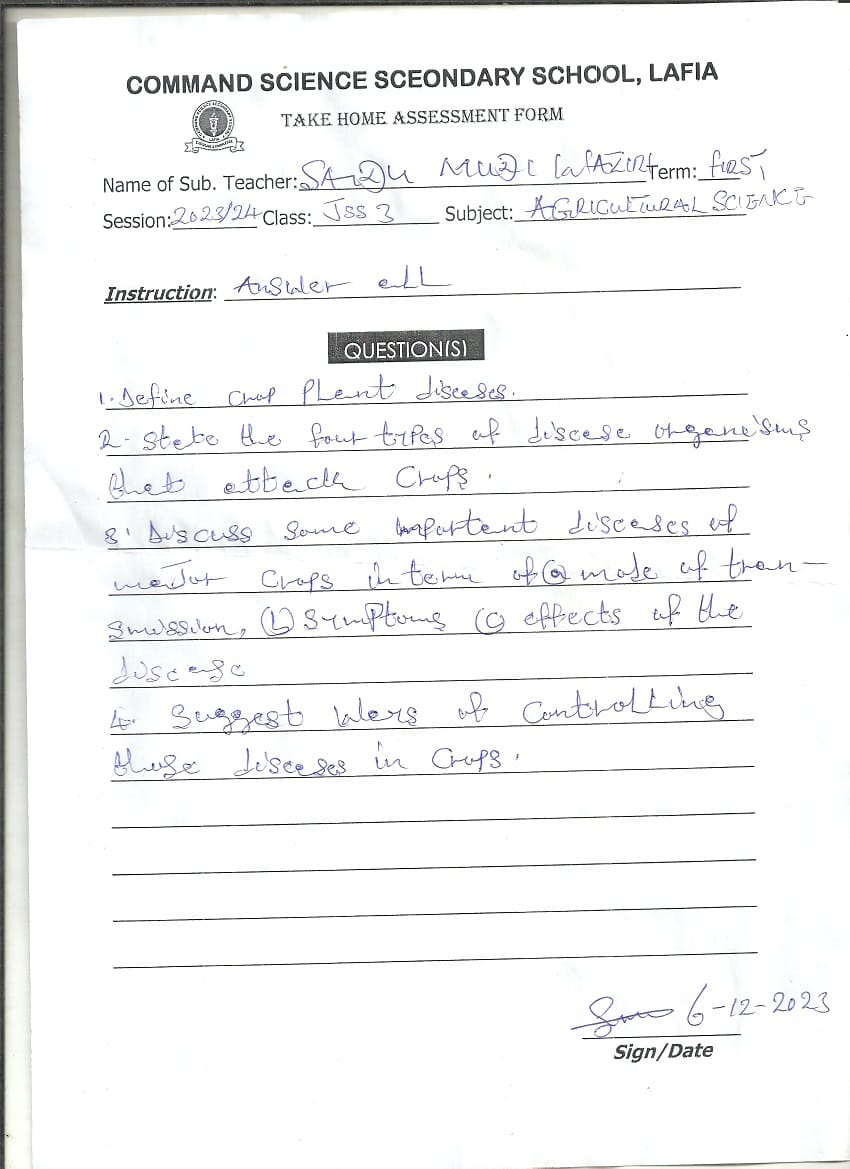 COMMAND SCIENCE SCEONDARY SCHOOL, LAFIA
TAKE HOME ASSESSMENT FORM
Name of Sub. Teacher: Term: FIRST
Session: 2023/24 Class: JSS 3 Subject: AGRICULTURAL SCIENCE
Instruction: Answer all
QUESTION(S)
1. Define Crop Plant diseases.
2. State the four types of disease organisms
that attack Crops.
3. Discuss some important diseases of
major Crops in term of (a) mode of tran-
smission, (b) Symptoms (c) effects of the
disease
4. Suggest ways of Controlling
these diseases in Crops.
6-12-2023
Sign/Date